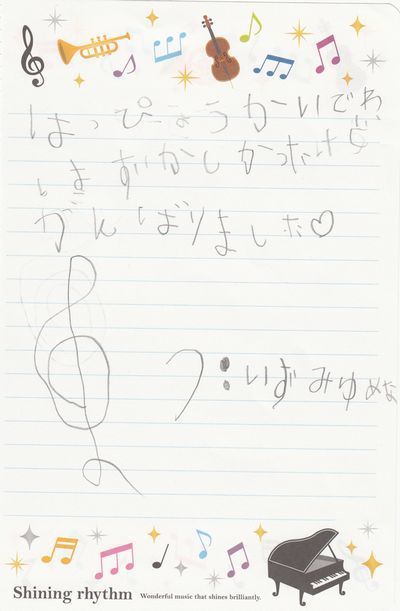 はっぴょうかいでわ
はずかしかったけど
がんばりました♡
いずみゆめな
Shining rhythm Wonderful music that shines brilliantly.